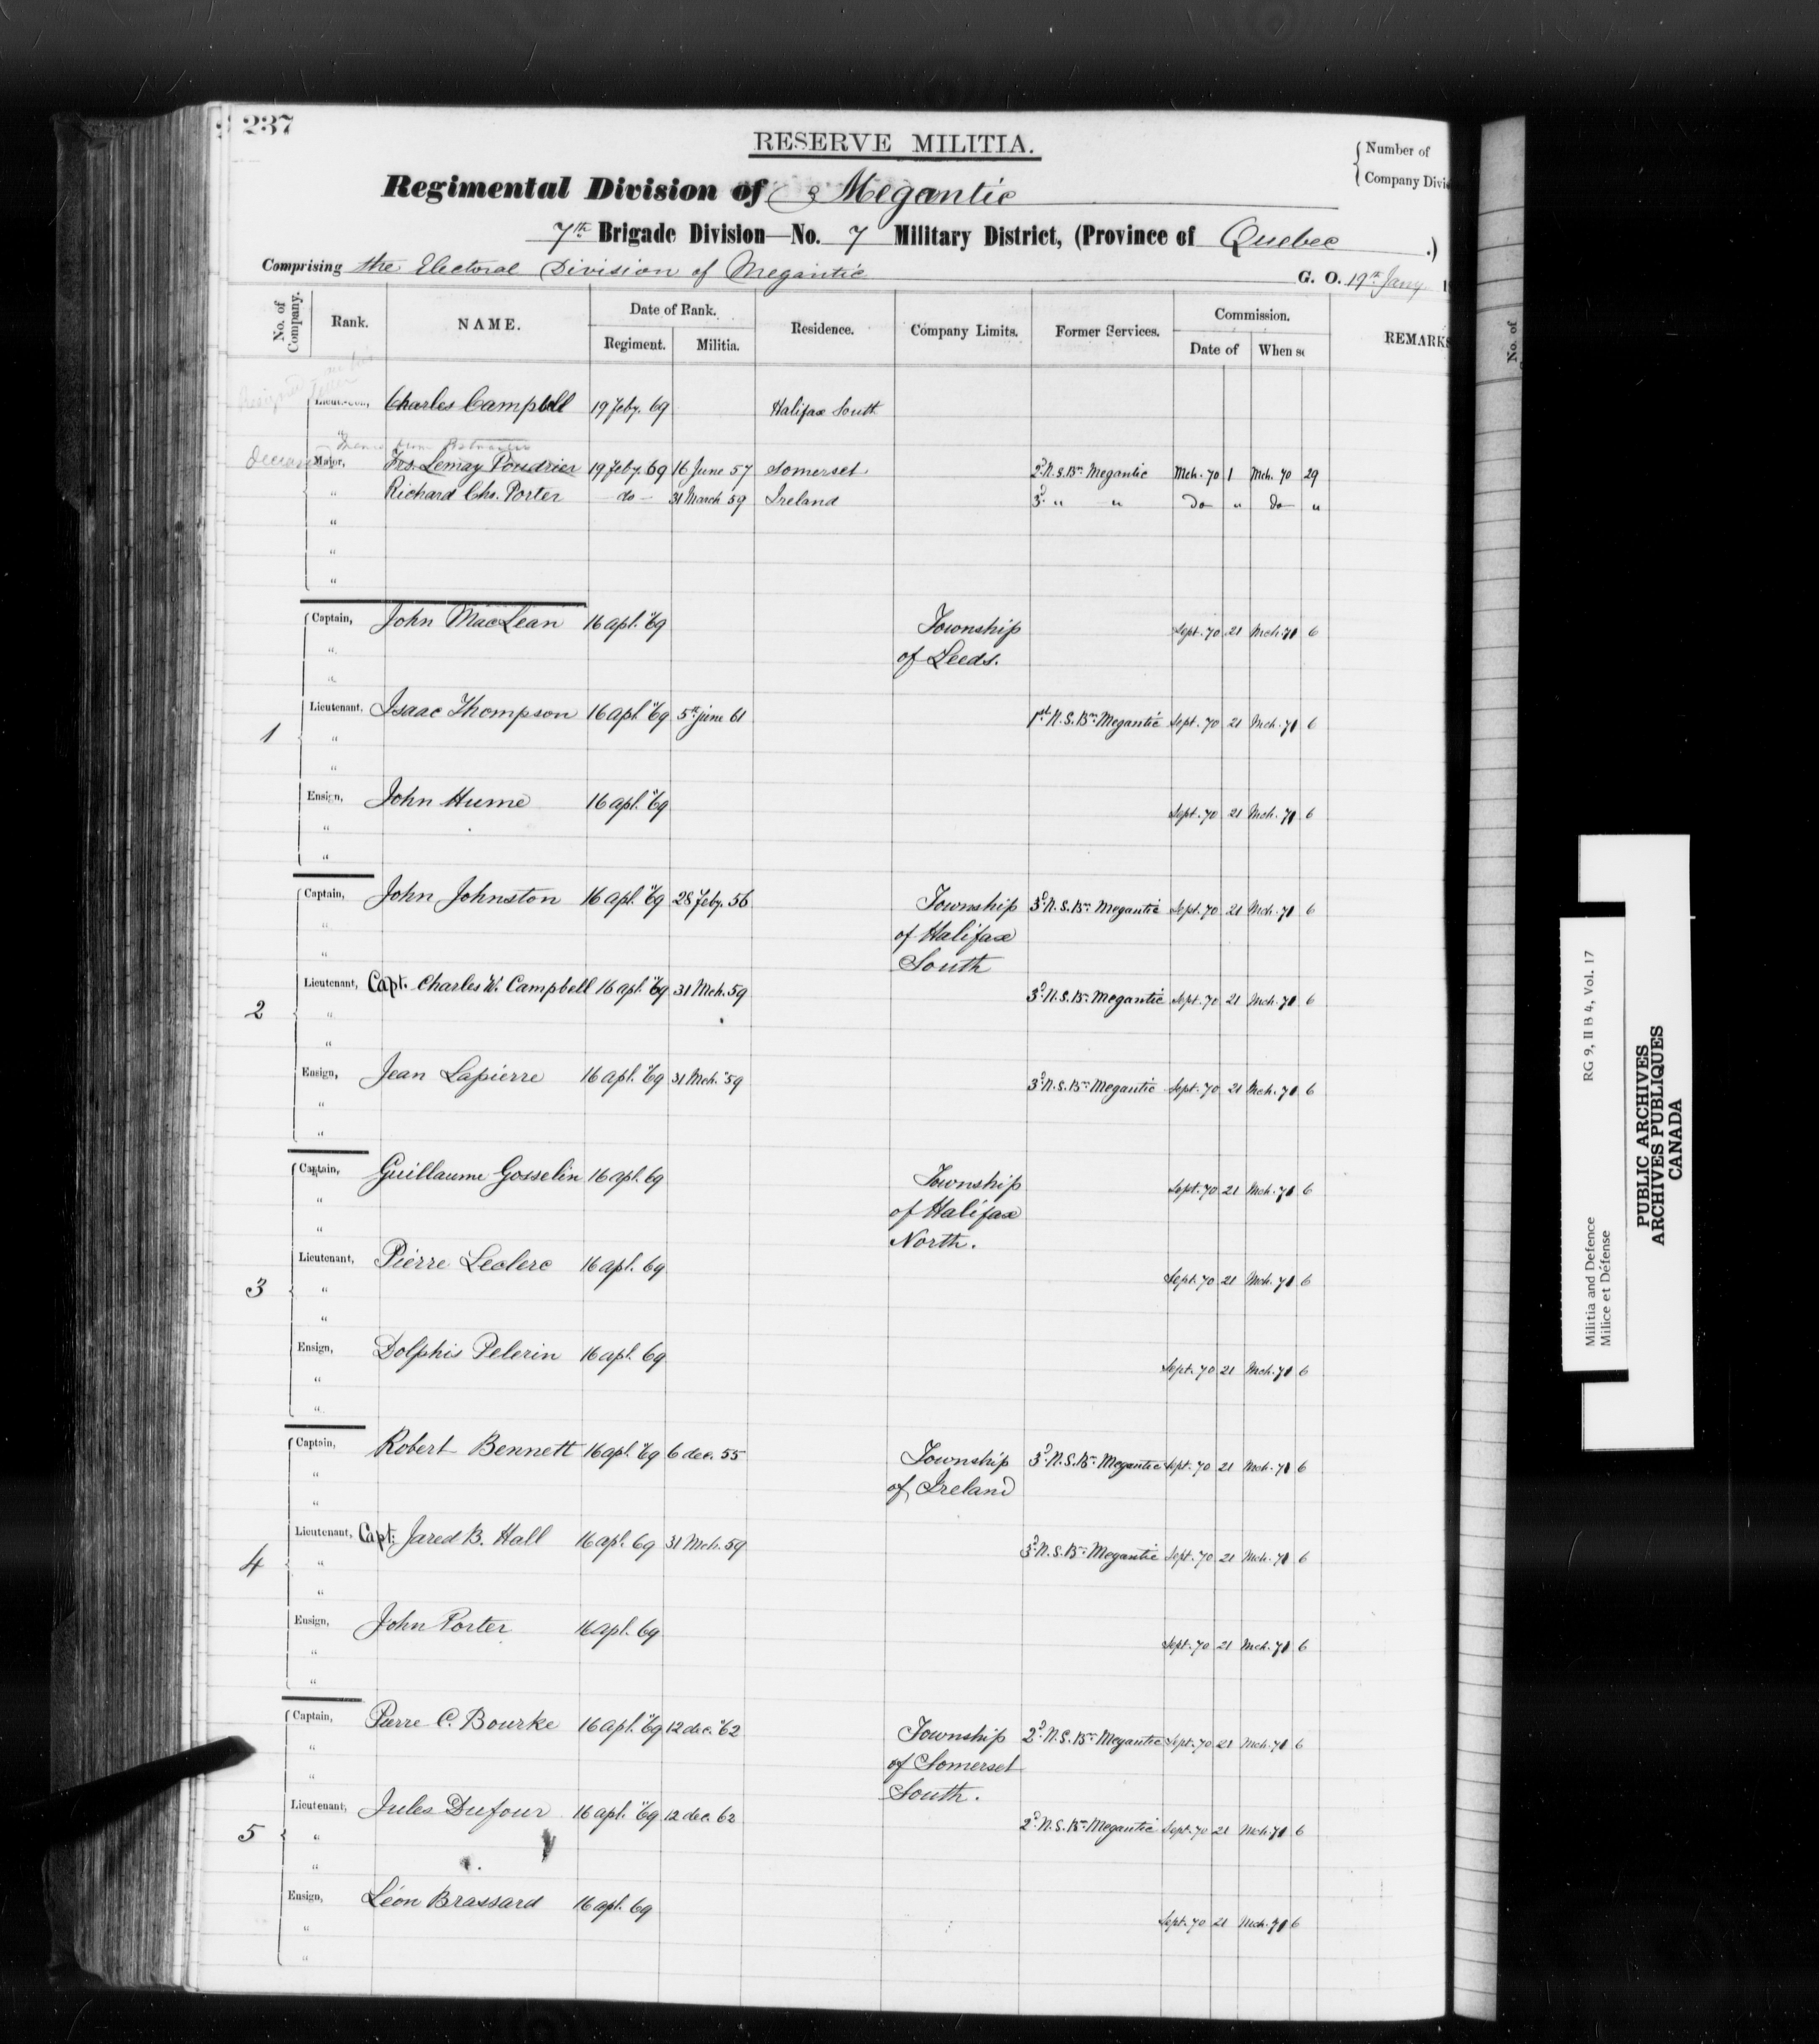 237
RESERVE MILITIA.
{ Number of
Company Divi
Regimental Division of Megantic
7th Brigade Division—No. 7 Military District, (Province of Quebec .)
Comprising the Electoral Division of Megantic G. O. 19th Jany
No. of Company. Rank. NAME. Date of Rank. Residence. Company Limits. Former Services. Commission. REMARKS
Regiment. Militia. Date of When se
Resigned letter
Lieut.-Col., Charles Campbell 19 Feby. 69 Halifax South
"
from Postmaster
Major, Frs. Lemay Poudrier 19 Feby. 69 16 June 57 Somerset 2d N.S. Bn Megantic Mch. 70 1 Mch. 70 29
" Richard Chs. Porter do 31 March 59 Ireland 3d " " Do " Do "
"
"
"
Captain, John MacLean 16 apl. "69 Township Sept. 70 21 Mch. 71 6
" of Leeds.
"
1 Lieutenant, Isaac Thompson 16 apl. "69 5th june 61 1st N.S. Bn Megantic Sept. 70 21 Mch. 71 6
"
"
Ensign, John Hume 16 apl. "69 Sept. 70 21 Mch. 71 6
"
"
Captain, John Johnston 16 apl. "69 28 Feby. 56 Township 3d N.S. Bn Megantic Sept. 70 21 Mch. 71 6
" of Halifax
" South
2 Lieutenant, Capt. Charles W. Campbell 16 apl. "69 31 Mch. 59 3d N.S. Bn Megantic Sept. 70 21 Mch. 71 6
"
"
Ensign, Jean Lapierre 16 apl. "69 31 Mch. "59 3d N.S. Bn Megantic Sept. 70 21 Mch. 71 6
"
"
Captain, Guillaume Gosselin 16 apl. 69 Township Sept. 70 21 Mch. 71 6
" of Halifax
" North.
3 Lieutenant, Pierre Leclerc 16 apl. 69 Sept. 70 21 Mch. 71 6
"
"
Ensign, Dolphis Pelerin 16 apl. 69 Sept. 70 21 Mch. 71 6
"
"
Captain, Robert Bennett 16 apl. "69 6 dec. 55 Township 3d N.S. Bn Megantic Sept. 70 21 Mch. 71 6
" of Ireland
"
4 Lieutenant, Capt. Jared B. Hall 16 apl. 69 31 Mch. 59 3d N.S. Bn Megantic Sept. 70 21 Mch. 71 6
"
"
Ensign, John Porter 16 apl. 69 Sept. 70 21 Mch. 71 6
"
"
Captain, Pierre C. Bourke 16 apl. "69 12 dec. "62 Township 2d N.S. Bn Megantic Sept. 70 21 Mch. 71 6
" of Somerset
" South.
5 Lieutenant, Jules Dufour 16 apl. "69 12 dec. 62 2d N.S. Bn Megantic Sept. 70 21 Mch. 71 6
"
"
Ensign, Léon Brassard 16 apl. 69 Sept. 70 21 Mch. 71 6
"
"
No. of
Militia and Defence RG 9, II B 4, Vol. 17
Milice et Défense
PUBLIC ARCHIVES
ARCHIVES PUBLIQUES
CANADA